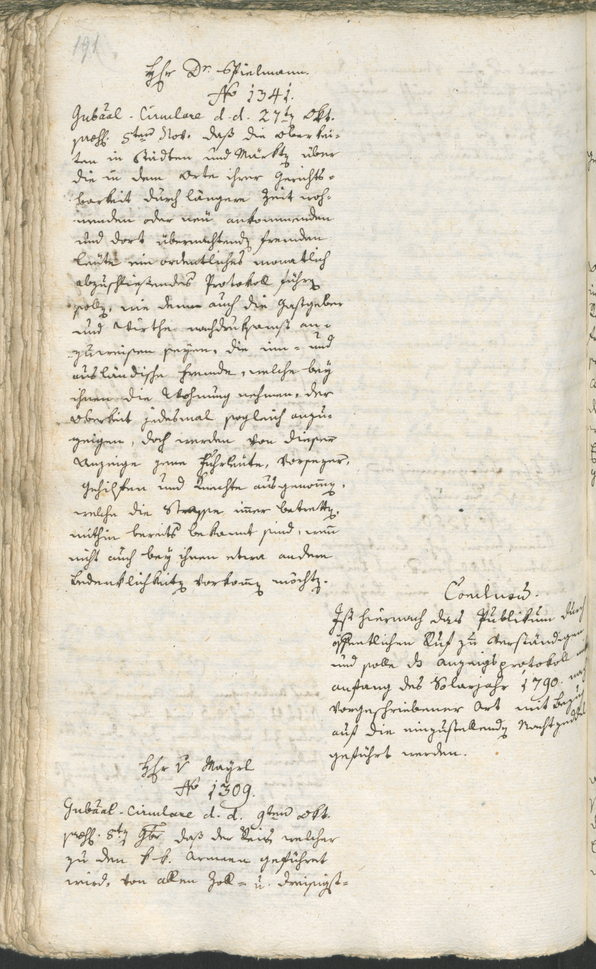 191
Hhr Dr. Spielmann.
No 1341.
Gubäal-Circulare d. d. 27ten Okt.
präs. 5ten Nov. daß die Oberkei-
ten in Städten und Märkten über
die in dem Orte ihrer Gerichts-
barkeit durch längere Zeit woh-
nenden oder neü ankommenden
und dort übernachtenden fremden
Leüte ein ordentliches monatlich
abzuschließendes Protokoll führen
sollen, wie dann auch die Gastgeber
und Wirthe nachdruksamst an-
zuweisen seyen, die inn- und
ausländische fremde, welche bey
ihnen die Wohnung nehmen, der
Oberkeit jedesmal sogleich anzu-
zeigen, doch werden von dieser
Anzeige jene Fuhrleüte,
Gehilfen und Knechte ausgenommen,
welche die Strasse immer betretten,
mithin bereits bekannt sind, wenn
nicht auch bey ihnen etwa andere
bedenklichkeiten vorkommen möchten.
Conclusum.
Ist hiernach das Publikum durch
öffentlichen Ruf zu verständigen
und solle das Anzeigsprotokol mit
anfang des Solarjahr 1790. nach
vorgeschriebener Art mit Bezug
auf die einzustellenden Nachtzettel
geführt werden.
Hhr v Mayrl
No 1309.
Gubäal-Circulare d. d. 9ten Okt.
präs. 8br. daß der Reis welcher
zu den k. k. Armeen geführet
wird, von allen Zoll- u. Dreisigst-